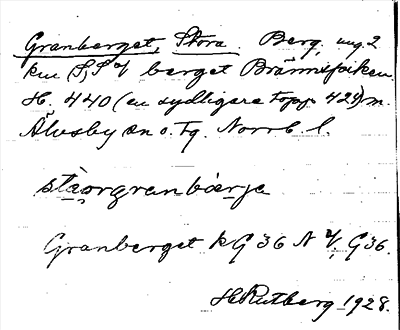 Granberget, Stora. Berg, ung. 2
km S, S of berget Brännspiken.
H. 440 (en sydligare topp 424) m.
Älvsby sn o. tg. Norrb. l.
stàorgranbærje
Granberget k G 36 N V, G 36.
H Rutberg 1928.